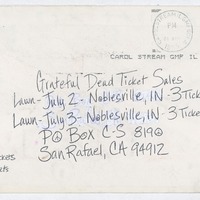 PM
CAROL STREAM GMF IL
Grateful Dead Ticket Sales
Lawn - July 2 - Noblesville, IN - 3 Ticke
Lawn - July 3 - Noblesville, IN - 3 Ticke
P O Box C-S 8190
San Rafael, CA 94912
ckets